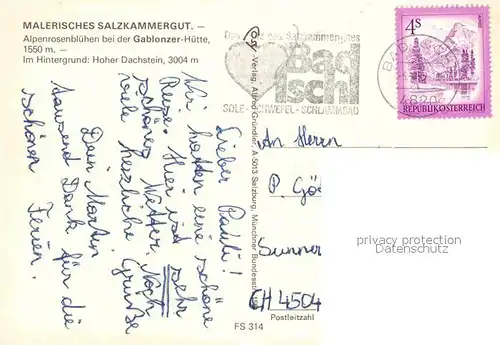 MALERISCHES SALZKAMMERGUT. —
Alpenrosenblühen bei der Gablonzer-Hütte,
1550 m. —
Im Hintergrund: Hoher Dachstein, 3004 m
Bad
Ischl
SOLE-SCHWEFEL-SCHLAMMBAD
4820
4S
REPUBLIK ÖSTERREICH
Lieber Pauli!
Wir hatten eine schöne
Reise. Hier ist sehr
schönes Wetter. Noch
viele herzliche Grüße
Dein Martin
tausend Dank für die
schönen Ferien.
Cosy-Verlag, Alfred Gründler, A-5013 Salzburg, Münchner Bundesstr.
An Herrn
P. Gö
Sunner
CH 4504
Postleitzahl
FS 314
privacy protection
Datenschutz